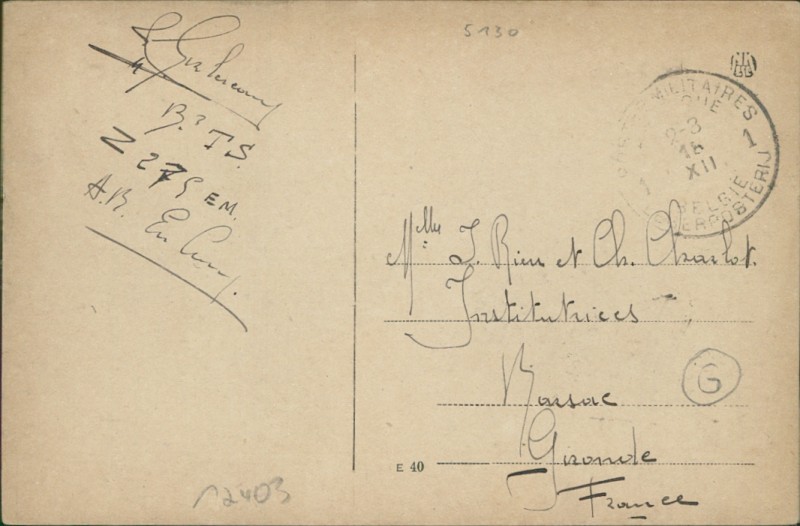 5130
B.² TS.
Z 279 E.M.
A.B. En Camp.
POSTES MILITAIRES
2-3
15
XII
1
1
BELGIE
LEGERPOSTERIJ
Melles J. Rieu et Ch. Charlot.
Institutrices
Barsac
G
Gironde
France
E 40
12403